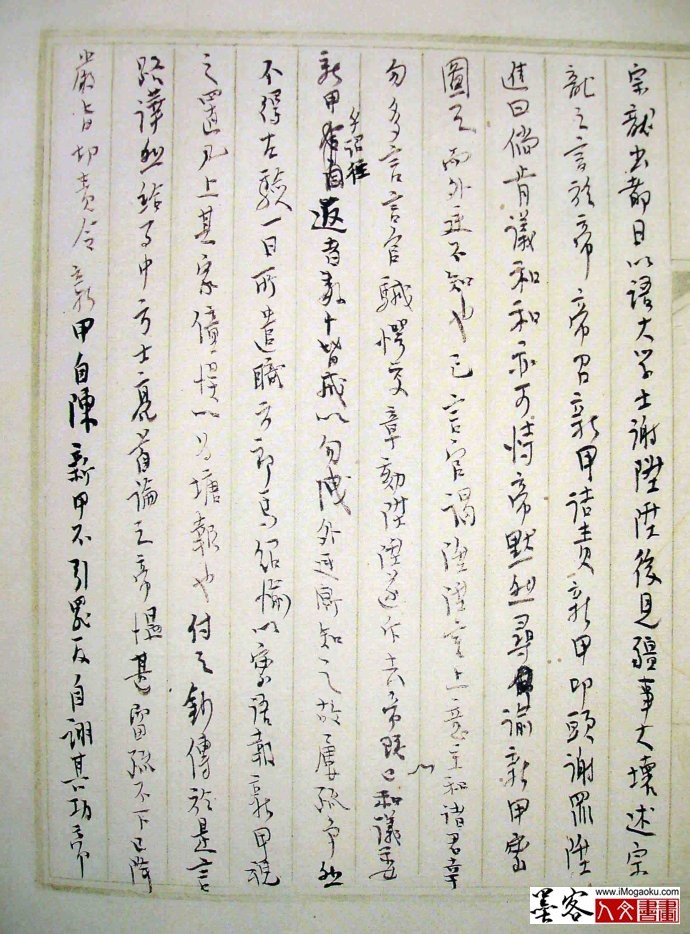 宗龍出都日以語大学士謝陞陞後見疆事大壞述宗
龍之言於帝帝召新甲詰責新甲叩頭謝罪陞
進曰倘肯議和和亦可恃帝默然尋諭新甲密
圖之而外廷不知也已言官謁陞陞言上意主和諸君幸
勿多言言官駴愕交章劾陞陞遂斥去帝既以和議委
新甲手詔往返者数十皆戒以勿洩外廷漸知之故屢疏争然
不得左驗一日所遣職方郎馬紹愉以密語報新甲視
之置几上其家僮誤以为塘報也付之鈔傳於是言
路譁然給事中方士亮首論之帝慍甚留疏不下已降
嚴旨切責令新甲自陳新甲不引罪反自詡其功帝
www.iMogaoku.com
墨客人文書畫